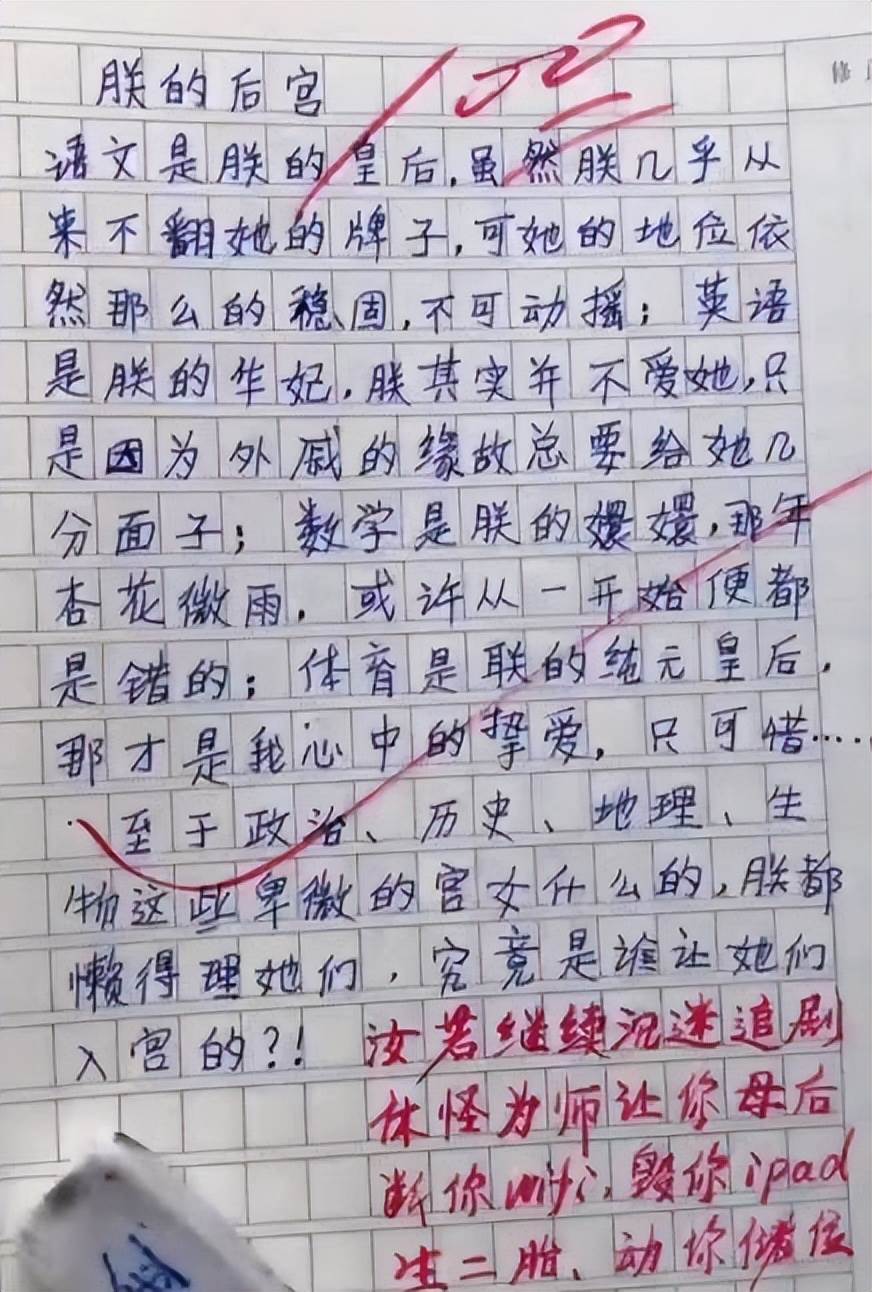 朕的后宫
100
语文是朕的皇后,虽然朕几乎从
来不翻她的牌子,可她的地位依
然那么的稳固,不可动摇;英语
是朕的华妃,朕其实并不爱她,只
是因为外戚的缘故总要给她几
分面子;数学是朕的嬛嬛,那年
杏花微雨,或许从一开始便都
是错的;体育是联的纯元皇后,
那才是我心中的挚爱,只可惜……
至于政治、历史、地理、生
物这些卑微的宫女什么的,朕都
懒得理她们,究竟是谁让她们
入宫的?!
汝若继续沉迷追剧
休怪为师让你母后
断你wifi,毁你ipad
生二胎、动你储位